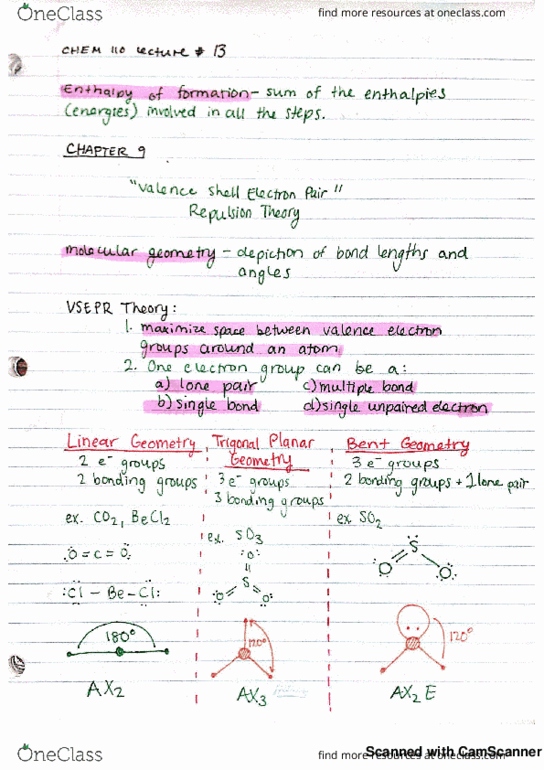 OneClass
find more resources at oneclass.com
CHEM 110 Lecture # 13
Enthalpy of formation - sum of the enthalpies
(energies) involved in all the steps.
CHAPTER 9
"Valence Shell Electron Pair"
Repulsion Theory
molecular geometry - depiction of bond lengths and
angles
VSEPR Theory:
1. maximize space between valence electron
groups around an atom
2. One electron group can be a:
a) lone pair c) multiple bond
b) single bond d) single unpaired electron
Linear Geometry
2 e⁻ groups
2 bonding groups
ex. CO₂, BeCl₂
:O=C=O:
:Cl - Be - Cl:
180°
AX₂
Trigonal Planar
Geometry
3 e⁻ groups
3 bonding groups
ex. SO₃
:O:
S
O O
120°
AX₃
Bent Geometry
3 e⁻ groups
2 bonding groups + 1 lone pair
ex SO₂
S
O O
120°
AX₂E
OneClass
find more resources at oneclass.com
Scanned with CamScanner